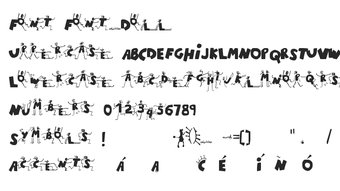 FONT FONT DOLL
UPPERCASE ABCDEFGHIJKLMNOPQRSTUVW
LOWERCASE ABCDEFGHIJKLMNOPQRS
NUMBERS 0123456789
SYMBOLS ! -=() ". /
ACCENTS Á A C É Í N Ó